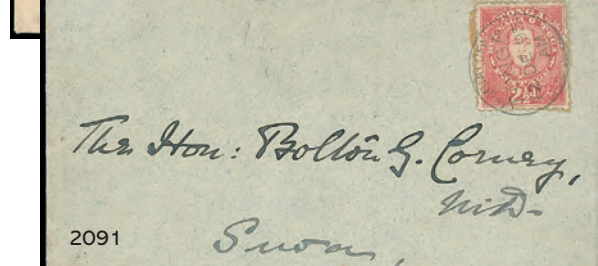 The Hon: Bolton G. Corney,
M.D.
Suva,
2091
2½d